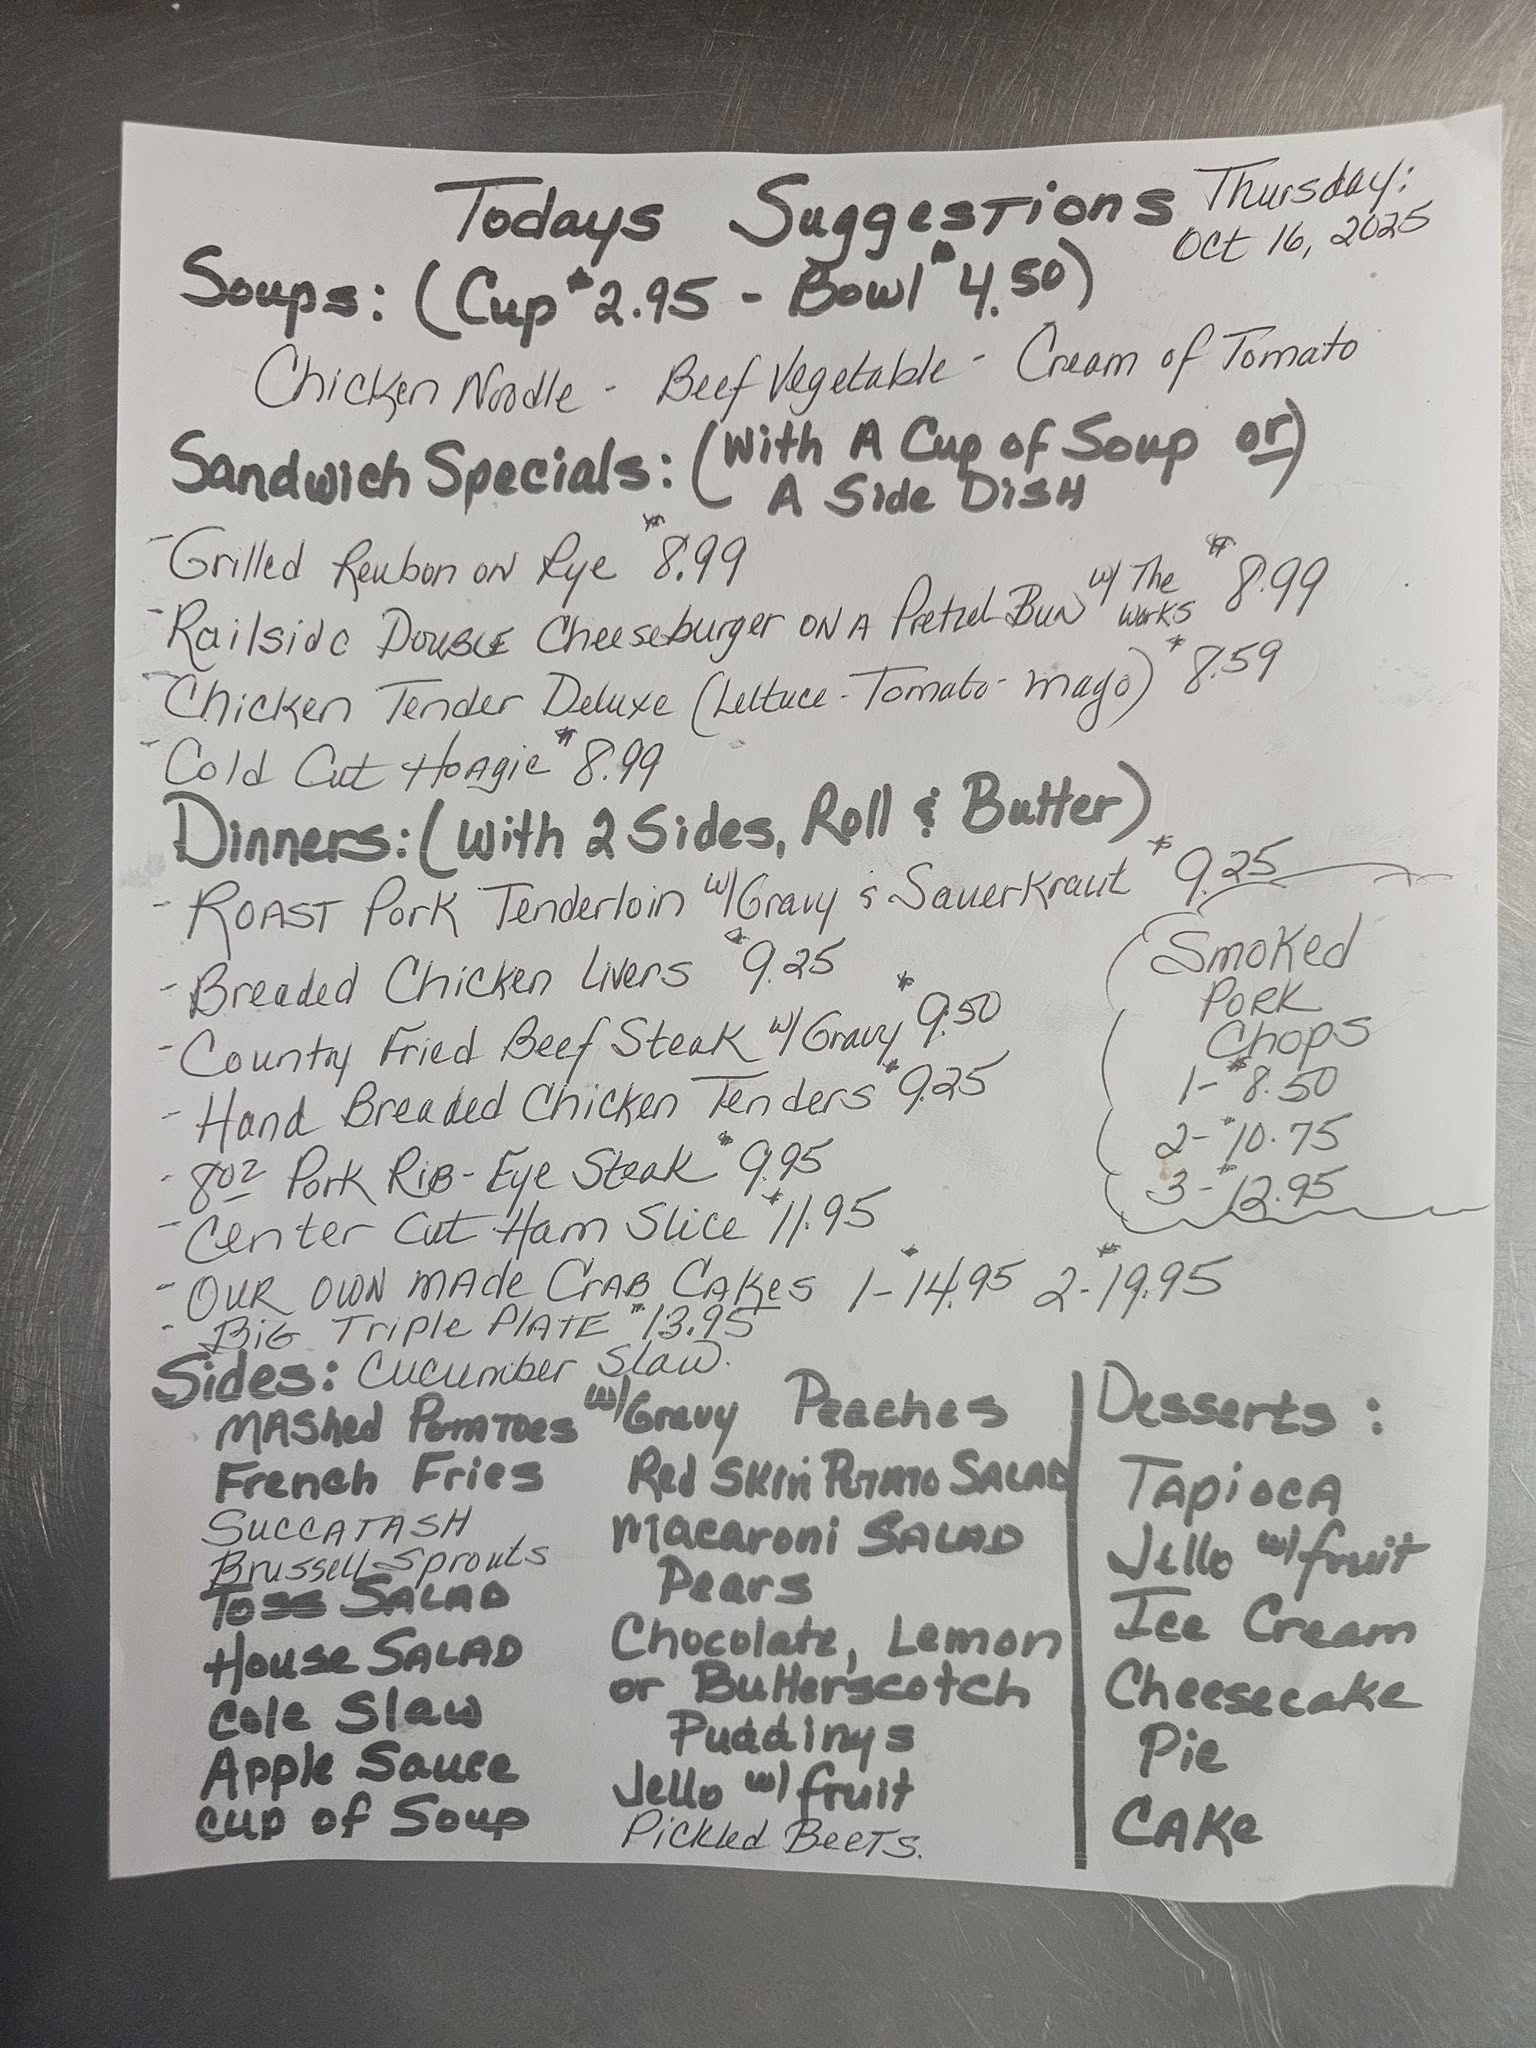 Todays Suggestions
Thursday:
Oct 16, 2025
Soups: (Cup $2.95 - Bowl $4.50)
Chicken Noodle - Beef Vegetable - Cream of Tomato
Sandwich Specials: (With A Cup of Soup or)
A Side Dish
- Grilled Reubon on Rye $8.99
- Railside Double Cheeseburger on A Pretzel Bun w/ The Works $8.99
- Chicken Tender Deluxe (Lettuce - Tomato - mayo) $8.59
- Cold Cut Hoagie $8.99
Dinners: (With 2 Sides, Roll & Butter)
- Roast Pork Tenderloin w/Gravy & Sauerkraut $9.25
- Breaded Chicken Livers $9.25
- Country Fried Beef Steak w/Gravy $9.50
- Hand Breaded Chicken Tenders $9.25
- 8oz Pork Rib-Eye Steak $9.95
- Center Cut Ham Slice $11.95
- Our own made Crab Cakes 1-$14.95 2-$19.95
- Big Triple Plate $13.95
Smoked
Pork
Chops
1-$8.50
2-$10.75
3-$12.95
Sides: Cucumber Slaw.
Mashed Potatoes w/Gravy
French Fries
Succatash
Brussell Sprouts
Toss Salad
House Salad
Cole Slaw
Apple Sauce
Cup of Soup
Peaches
Red Skin Potato Salad
Macaroni Salad
Pears
Chocolate, Lemon
or Butterscotch
Puddings
Jello w/ fruit
Pickled Beets.
Desserts:
Tapioca
Jello w/ fruit
Ice Cream
Cheesecake
Pie
Cake